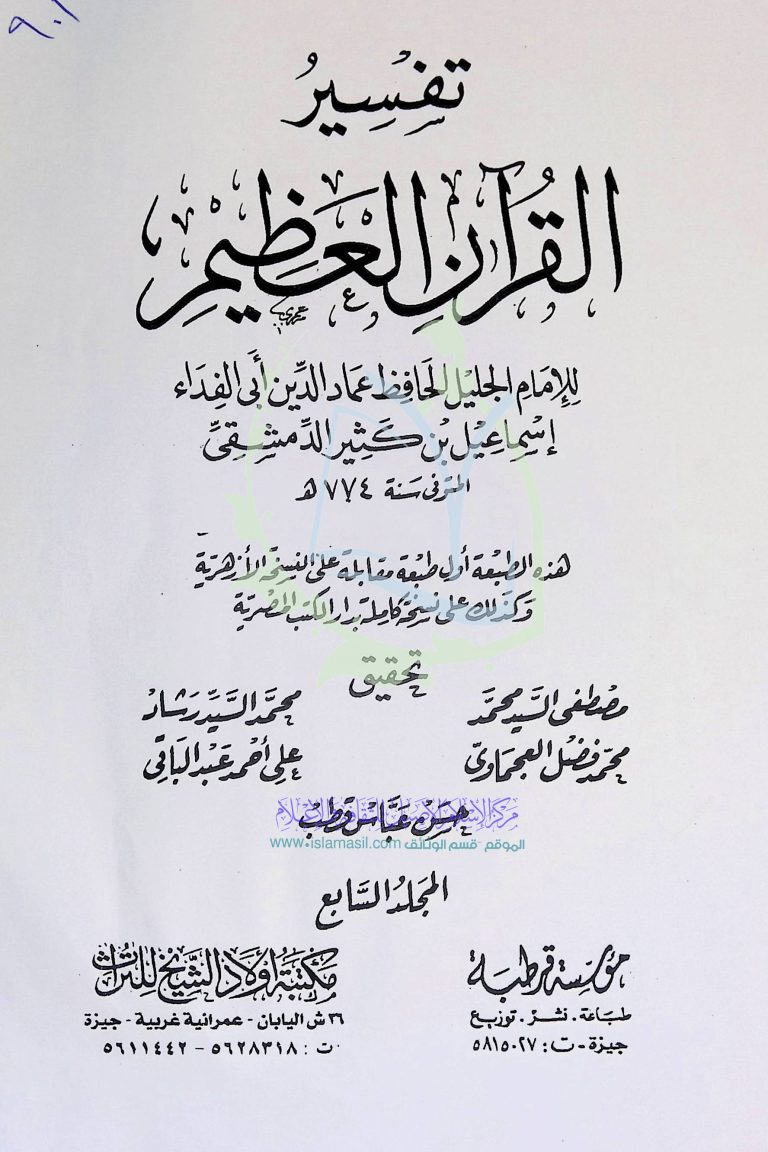 ٩٠١
تفسير
القرآن العظيم
للإمام الجليل الحافظ عماد الدين أبى الفداء
إسماعيل بن كثير الدمشقى
المتوفى سنة ٧٧٤ هـ
هذه الطبعة أول طبعة مقابلة على النسخة الأزهرية
وكذلك على نسخة كاملة بدار الكتب المصرية
تحقيق
مصطفى السيد محمد محمد السيد رشاد
محمد فضل العجماوى على أحمد عبد الباقى
حسن عباس قطب
الموقع - قسم الوثائق www.islamasil.com
المجلد السابع
مؤسسة قرطبة
طباعة . نشر . توزيع
جيزة - ت : ٥٨١٥٠٢٧
مكتبة أولاد الشيخ للتراث
٣٦ ش اليابان - عمرانية غربية - جيزة
ت : ٥٦٢٨٣١٨ - ٥٦١١٤٤٢